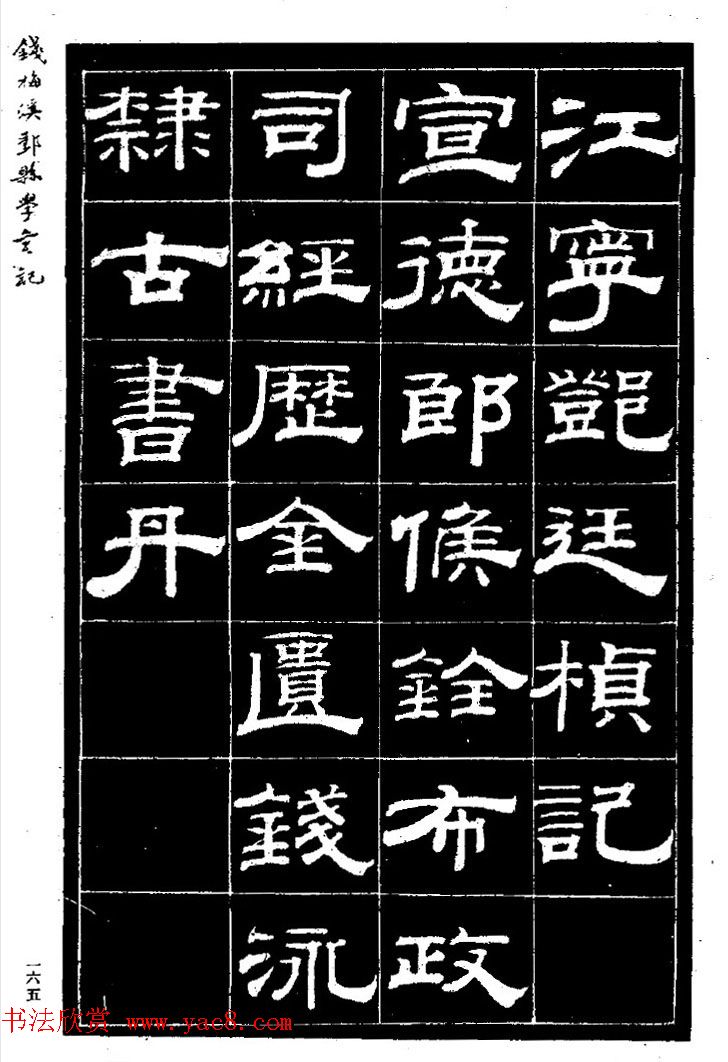 江寧鄧廷楨記
宣德郎候銓布政
司經歴金匱錢泳
隸古書丹
錢梅溪鄞縣學宮記
一六五
书法欣赏 www.yac8.com